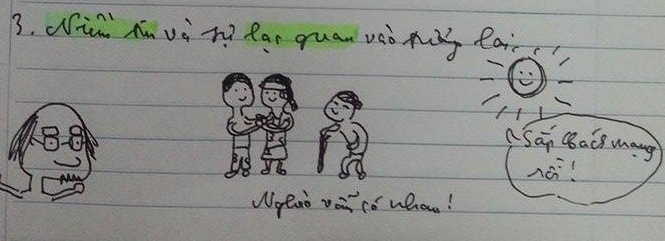 3. Niềm tin và sự lạc quan vào tương lai...
Sắp Cách mạng
rồi!
Nghèo vẫn có nhau!